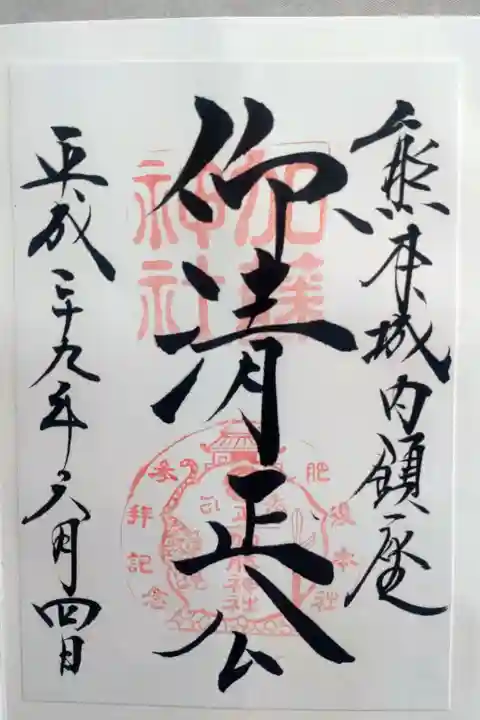 熊本城内鎮座
仰清正公
加藤
神社
肥後本社
参拝記念
平成二十九年六月四日